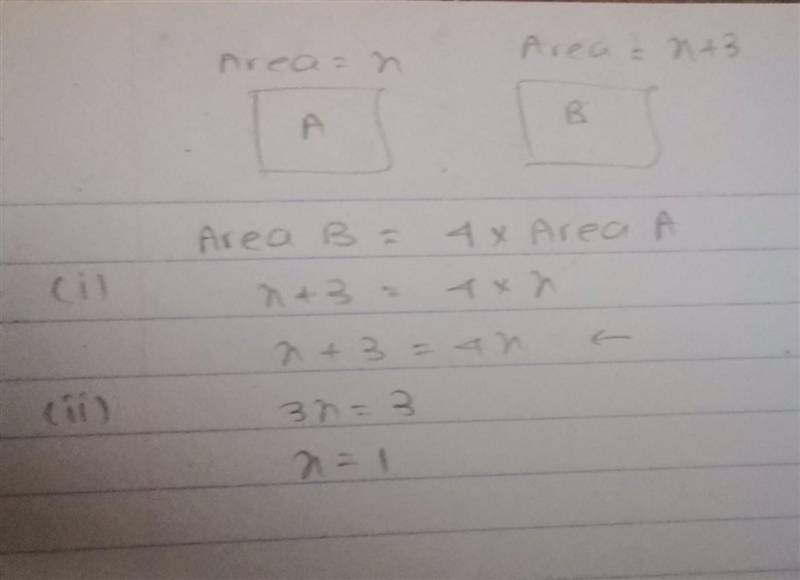 Area = x Area = x+3
A B
Area B = 4 × Area A
(i) x + 3 = 4 × x
x + 3 = 4x ←
(ii) 3x = 3
x = 1